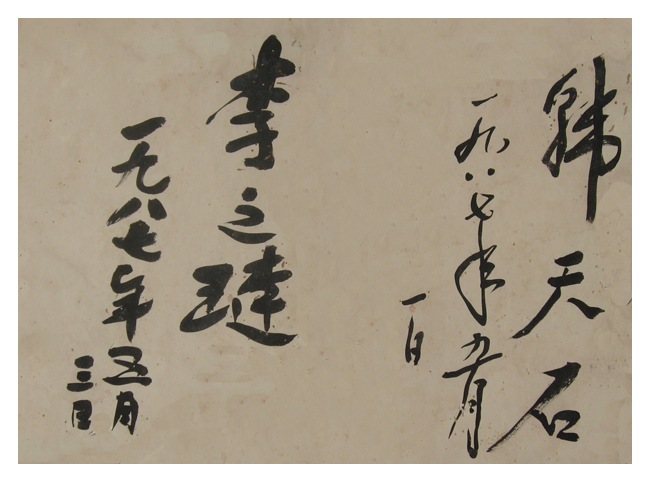 韩天石
一九八七年五月
一日
李之璉
一九八七年五月
三日